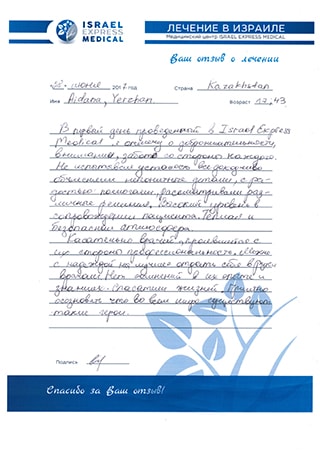 ISRAEL
EXPRESS
MEDICAL
ЛЕЧЕНИЕ В ИЗРАИЛЕ
Медицинский центр ISRAEL EXPRESS MEDICAL
Ваш отзыв о лечении
июнь 2017 год Страна Kazakhstan
Имя Aidana, Yerzhan. Возраст 43
В первый день проведенный в Israel Express
Medical, я о доброжелательности,
внимании, заботе со стороны каждого.
Не все доходчиво
объясняли с ра-
достью помогали, рассматривали раз-
личные решения. Высокий уровень в
сопровождении пациента. Теплая и
безопасная атмосфера.
Касательно врачей,
их стороны профессиональность.
с надеждой на лучшее отдать себя в руки
врачам! Нет сомнений в их опыте и
знаниях. Спасатели жизней. Приятно
осознавать что во всем мире существуют
такие герои.
Подпись
Спасибо за Ваш отзыв!